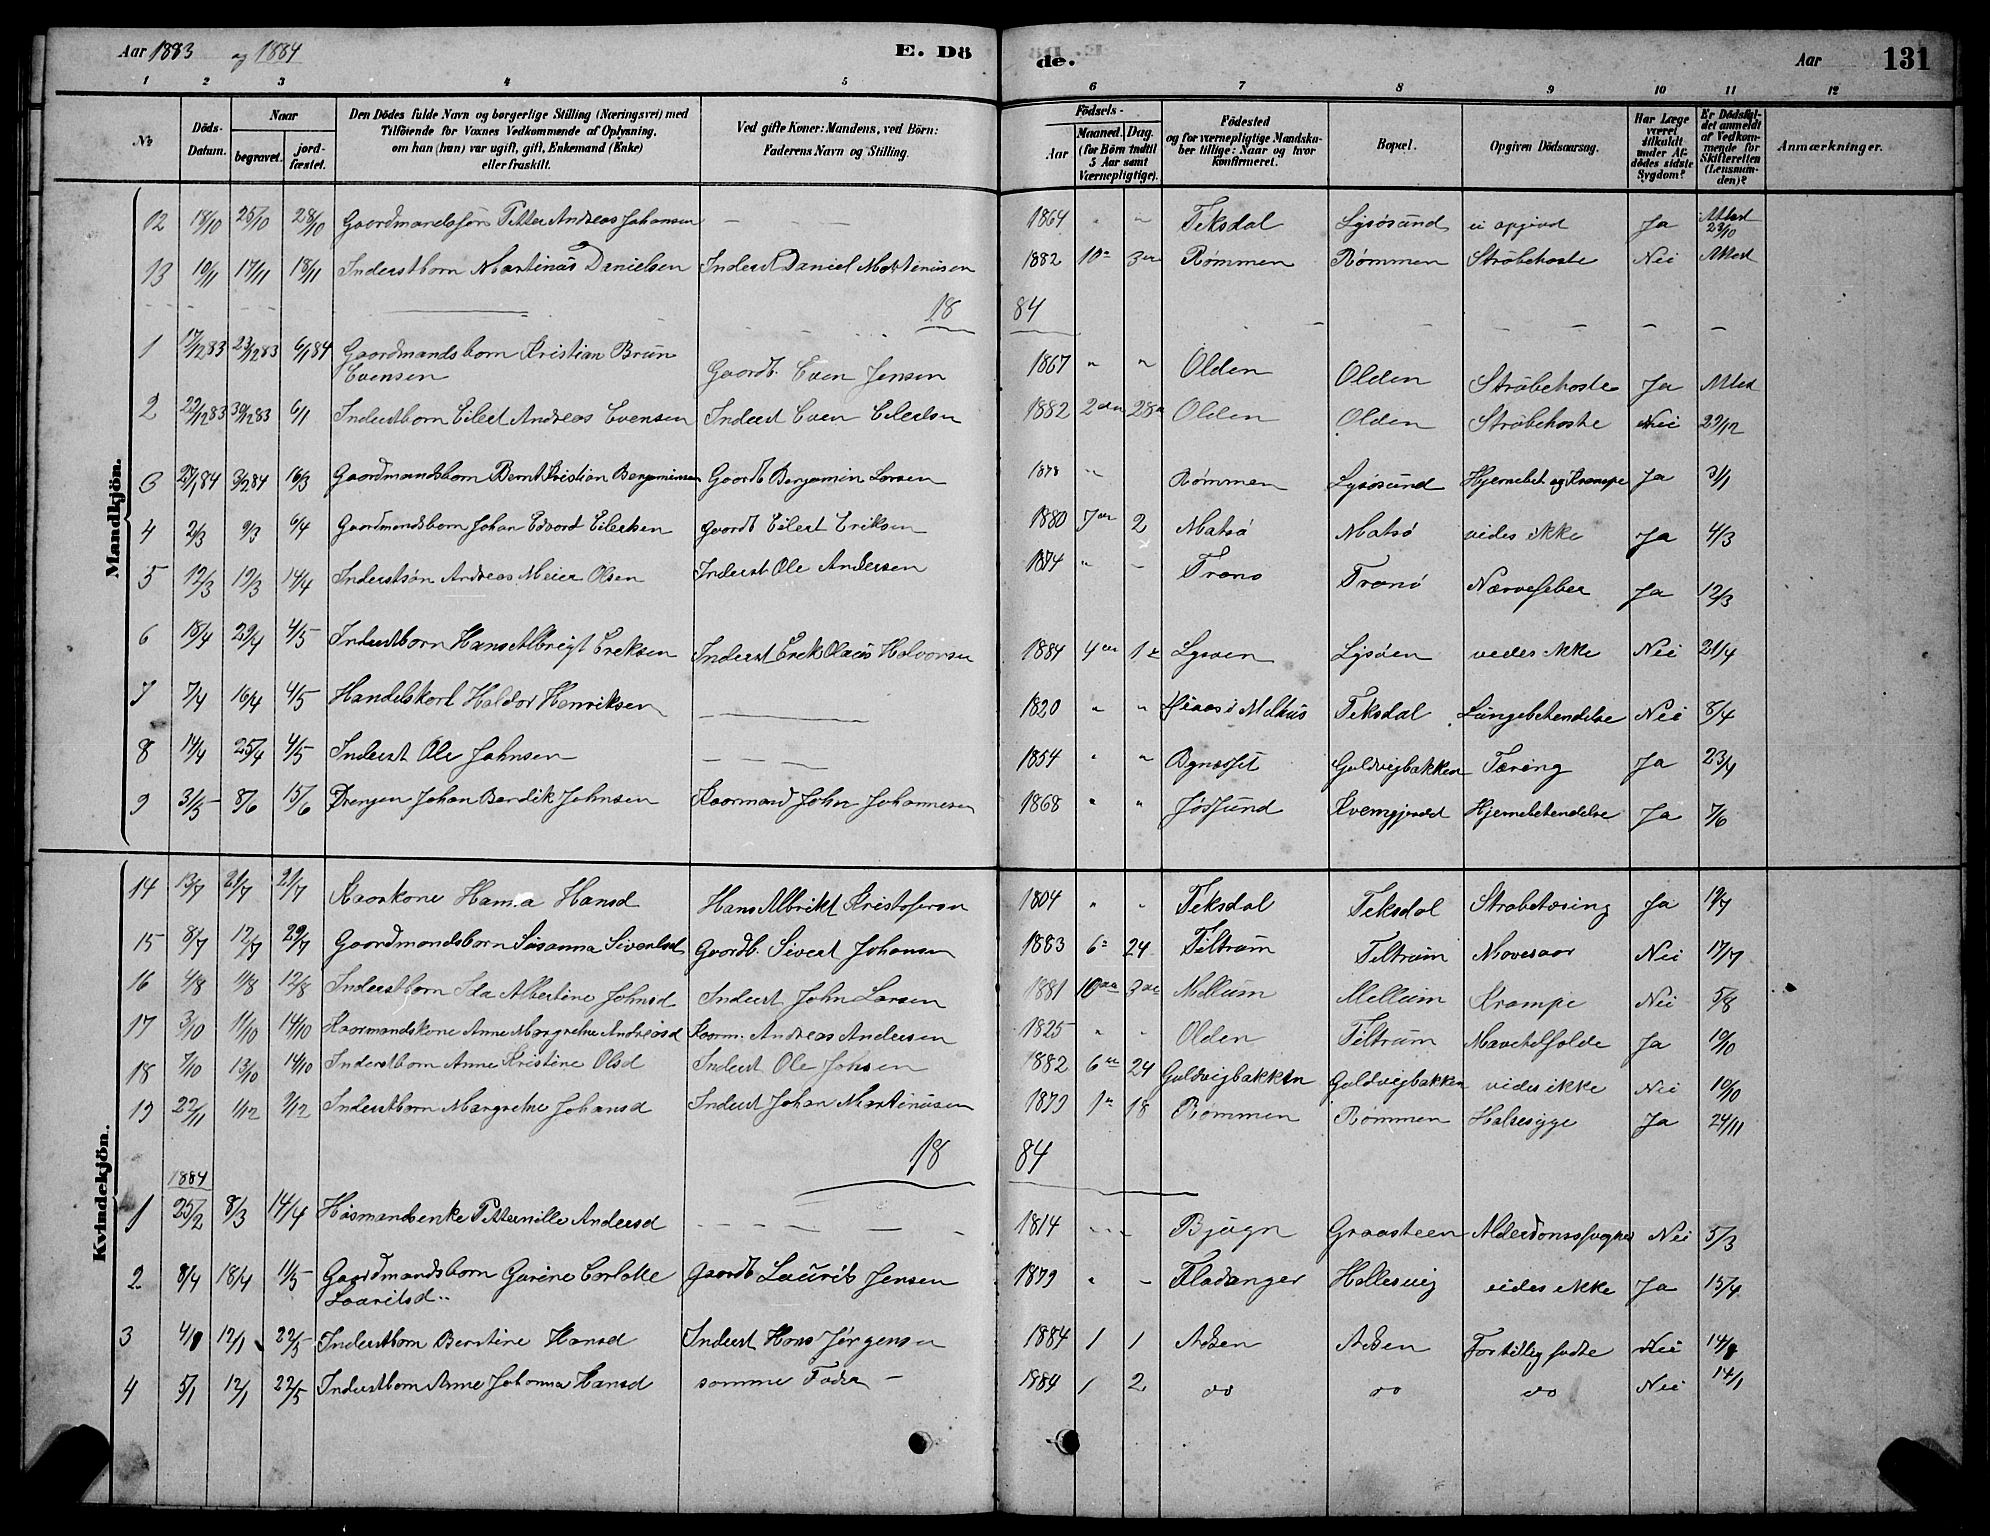 Aar 1883 og 1884 E. Dö
de. Aar 131
1 2 3 4 5 6 7 8 9 10 11 12
No
Döds-Datum.
Naar
begravet.
jord-fæstet.
Den Dödes fulde Navn og borgerlige Stilling (Næringsvei) med
Tilföiende for Voxnes Vedkommende af Oplysning,
om han (hun) var ugift, gift, Enkemand (Enke)
eller fraskilt.
Ved gifte Koner: Mandens, ved Börn:
Faderens Navn og Stilling.
Födsels-
Aar
Maaned. Dag.
(for Börn indtil
5 Aar samt
Værnepligtige).
Födested
og for værnepligtige Mandska-
ber tillige: Naar og hvor
konfirmeret.
Bopæl.
Opgiven Dödsaarsag.
Har Læge
været
tilkaldt
under Af-
dödes sidste
Sygdom?
Er Dödsfal-
det anmeldt
af Vedkom-
mende for
Skifteretten
(Lensman-
den)?
Anmærkninger.
Mandkjön.
12 18/10 25/10 28/10 Gaardmandssøn Petter Andreas Johansen — — 1864 " " Teksdal Lysøsund ei opgivet Ja Attest 23/10
13 10/11 17/11 18/11 Inderstbarn Martinus Danielsen Inderst Daniel Martinusen 1882 10 3 Rømmen Rømmen Strubehoste Nei Attest
18 84
1 17/12 83 23/12 83 6/1 84 Gaardmandsbarn Kristian Brun
Evensen Gaardb. Even Jensen 1867 " " Olden Olden Strubehoste Ja Attest
2 22/12 83 30/12 83 6/1 Inderstbarn Eilert Andreas Evensen Inderst Even Eilertsn 1882 2 28 Olden Olden Strubehoste Nei 29/12
3 27/1 84 3/2 84 16/3 Gaardmandsbarn Bernt Kristian Benjaminsen Gaardb Benjamin Larsen 1878 " Rømmen Lysøsund Hjernebet og Krampe Ja 31/1
4 2/3 9/3 6/4 Gaardmandsbarn Johan Edvard Eilertsen Gaardb Eilert Eriksen 1880 7 2 Matsø Matsø vides ikke Ja 4/3
5 12/3 19/3 14/4 Inderstsøn Andreas Meier Olsen Inderst Ole Andersen 1874 " - Tranø Tranø Nærvefeber Ja 12/3
6 18/4 29/4 4/5 Inderstbarn Hans Albrigt Ereksen Inderst Erek Olaus Halvorsen 1884 4 1 Lysøen Lysøen vedes ikke Nei 21/4
7 7/4 16/4 4/5 Handelskarl Haldor Henriksen 1820 " " Melhus Teksdal Lungebetendelse Nei 8/4
8 14/4 25/4 4/5 Inderst Ole Johnsen — — — 1854 " " Bynesset Guldvigbakken Tæring Ja 23/4
9 31/5 8/6 15/6 Drengen Johan Bendik Johnsen Kaarmand John Johannesen 1868 " " Jøssund Kvemgjerdet Hjernebetendelse Ja 7/6
Kvindekjön.
14 13/7 21/7 21/7 Kaarkone Hanna Hansd Hans Albrikt Kristofersn 1804 " " Teksdal Teksdal Strubetæring Ja 19/7
15 8/7 12/7 29/7 Gaardmandsbarn Susanna Sivertsd Gaardb. Sivert Johansen 1883 6 24 Teltrum Teltrum Mavesaar Nei 17/7
16 4/8 11/8 12/8 Inderstbarn Ida Albertine Johnsd Inderst John Larsen 1881 10 3 Mellum Mellum Krampe Nei 5/8
17 3/10 11/10 14/10 Kaarmandskone Anne Margrethe Andreasd Kaarm. Andreas Andersen 1825 " " Olden Teltrum Mavetilfelde Ja 10/10
18 7/10 13/10 14/10 Inderstbarn Anne Kristine Olsd Inderst Ole Johsen 1882 6 24 Guldvigbakken Guldvigbakken vides ikke Nei 10/10
19 22/11 1/12 2/12 Inderstbarn Margrethe Johansd Inderst Johan Martinusen 1879 1 18 Rømmen Rømmen Halsesyge Ja 24/11
18 84
1884
1 25/2 8/3 14/4 Husmandsenke Petternille Andersd — — — 1814 " " Bjugn Graasteen Alderdomssvaghed Nei 5/3
2 8/4 18/4 11/5 Gaardmandsbarn Gurine Carlotte
Lauritsd Gaardb Laurits Jensen 1879 " - Fladanger Hellesvig vides ikke Ja 15/4
3 4/1 12/1 22/5 Inderstbarn Berntine Hansd Inderst Hans Jørgensen 1884 1 1 Aösen Aösen For tidlig fødte Nei 14/1
4 5/1 12/1 22/5 Inderstbarn Anne Johanna Hansd samme Fader — 1884 1 2 do do do Nei 14/1